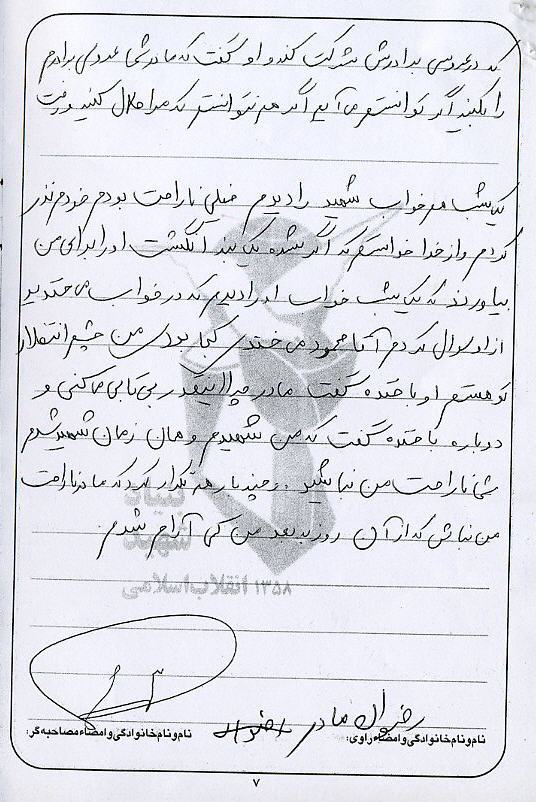 که در عروسی برادرش شرکت کند و او گفت که مادر شما عروسی برادرم
را بگیرید اگر توانستم می آیم اگر هم نتوانستم که مرا حلال کنید و رفت
یک شب هم خواب شهید را دیدم خیلی ناراحت بودم خودم نذر
کردم و از خدا خواستم که اگر شده یک بند انگشت او را برای من
بیاورند که یک شب خواب او را دیدم که در خواب می خندید
از او سوال کردم آقا محمود می خندی کجا بودی من چشم انتظار
تو هستم او با خنده گفت مادر چرا اینقدر بی تابی می کنی و
دوباره با خنده گفت که من شهیدم و همان زمان شهید شدم
شما ناراحت من نباشید. و چند بار هم تکرار کرد که مادر ناراحت
من نباش که از آن روز به بعد من کمی آرام شدم
بنیاد
شهید
انقلاب اسلامی ۱۳۵۸
مادر
نام و نام خانوادگی و امضاء راوی:
نام و نام خانوادگی و امضاء مصاحبه گر:
۷